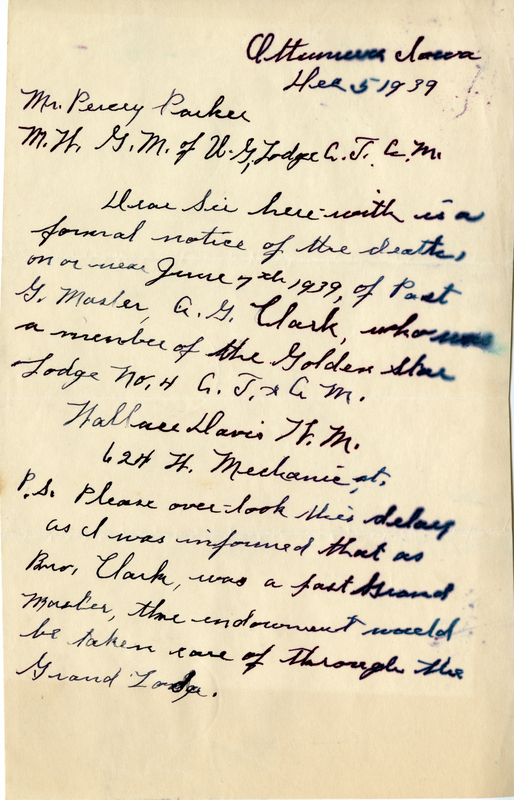 Ottumwa Iowa
Dec 5 1939
Mr. Percy Parker
M. W. G. M. of U. G. Lodge A. F. & A. M.
Dear Sir here-with is a
formal notice of the death,
on or near June 7th 1939, of Past
G. Master, A. G. Clark, who was
a member of the Golden Star
Lodge No. 4 A. F. & A M.
Wallace Davis W. M.
624 W. Mechanic st.
P.S. Please over-look this delay
as I was informed that as
Bro, Clark, was a past Grand
Master, the endowment would
be taken care of through the
Grand Lodge.